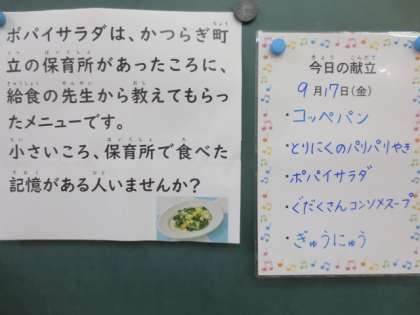 ポパイサラダは、かつらぎ町
立の保育所があったころに、
給食の先生から教えてもらっ
たメニューです。
小さいころ、保育所で食べた
記憶がある人いませんか?
今日の献立
9月17日(金)
・コッペパン
・とりにくのパリパリやき
・ポパイサラダ
・ぐだくさんコンソメスープ
・ぎゅうにゅう